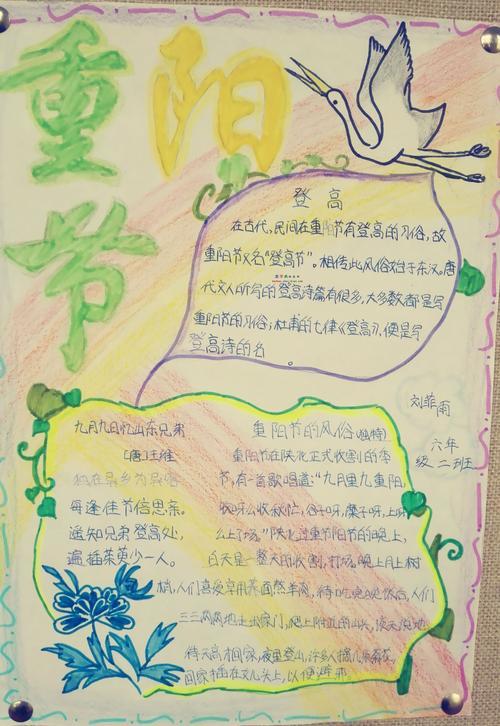 重阳
节
登高
在古代,民间在重阳节有登高的习俗,故
重阳节又名“登高节”。相传此风俗始于东汉。唐
代文人所写的登高诗篇有很多,大多数都是写
重阳节的习俗,杜甫的七律《登高》,便是写
登高诗的名。
刘菲雨
六年
级二班
九月九日忆山东兄弟
[唐]王维
独在异乡为异客
每逢佳节倍思亲。
遥知兄弟登高处,
遍插茱萸少一人。
重阳节的风俗(独特)
重阳节在陕北正式收割的季
节,有一首歌唱道:“九月里九重阳,
收呀么收秋忙,谷子呀,糜子呀,上呀
么上了场。”陕北过重阳节的晚上,
白天是一整天的收割,打场。晚上月上树
梢,人们喜爱享用荞面熬羊肉,待吃完晚饭后,人们
三三两两地走出家门,爬上附近的山头,谈天说地
待天亮才回家,夜里登山,许多人摘几朵菊花,
回家插在女儿头上,以便避邪